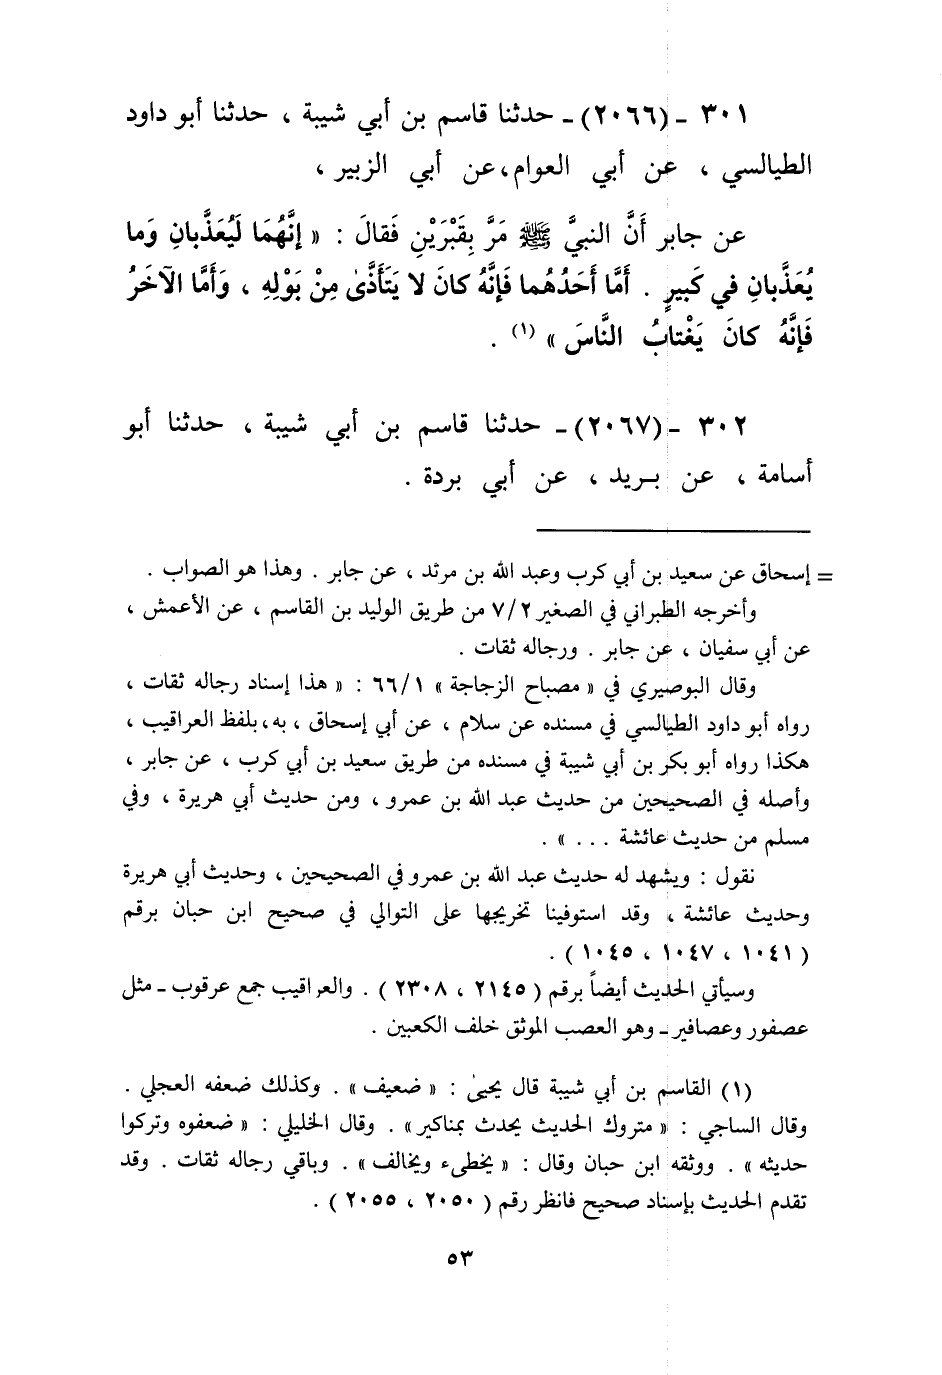 ٣٠١ ـ (٢٠٦٦) ـ حدثنا قاسم بن أبي شيبة ، حدثنا أبو داود
الطيالسي ، عن أبي العوام، عن أبي الزبير ،
عن جابر أَنَّ النبيَّ ﷺ مَرَّ بِقَبْرَيْنِ فَقالَ : « إِنَّهُمَا لَيُعَذَّبانِ وَما
يُعَذَّبانِ في كَبيرٍ . أَمَّا أَحَدُهُما فَإِنَّهُ كانَ لا يَتَأَذَّىٰ مِنْ بَوْلِهِ ، وَأَمَّا الآخَرُ
فَإِنَّهُ كانَ يَغْتابُ النَّاسَ » (١) .
٣٠٢ ـ (٢٠٦٧) ـ حدثنا قاسم بن أبي شيبة ، حدثنا أبو
أسامة ، عن بريد ، عن أبي بردة .
= إسحاق عن سعيد بن أبي كرب وعبد الله بن مرثد ، عن جابر . وهذا هو الصواب .
وأخرجه الطبراني في الصغير ٧/٢ من طريق الوليد بن القاسم ، عن الأعمش ،
عن أبي سفيان ، عن جابر . ورجاله ثقات .
وقال البوصيري في « مصباح الزجاجة » ٦٦/١ : « هذا إسناد رجاله ثقات ،
رواه أبو داود الطيالسي في مسنده عن سلام ، عن أبي إسحاق ، به، بلفظ العراقيب ،
هكذا رواه أبو بكر بن أبي شيبة في مسنده من طريق سعيد بن أبي كرب ، عن جابر ،
وأصله في الصحيحين من حديث عبد الله بن عمرو ، ومن حديث أبي هريرة ، وفي
مسلم من حديث عائشة ... » .
نقول : ويشهد له حديث عبد الله بن عمرو في الصحيحين ، وحديث أبي هريرة
وحديث عائشة ، وقد استوفينا تخريجها على التوالي في صحيح ابن حبان برقم
( ١٠٤١ ، ١٠٤٧ ، ١٠٤٥ ) .
وسيأتي الحديث أيضاً برقم ( ٢١٤٥ ، ٢٣٠٨ ) . والعراقيب جمع عرقوب ـ مثل
عصفور وعصافير ـ وهو العصب الموثق خلف الكعبين .
(١) القاسم بن أبي شيبة قال يحيىٰ : « ضعيف » . وكذلك ضعفه العجلي .
وقال الساجي : « متروك الحديث يحدث بمناكير » . وقال الخليلي : « ضعفوه وتركوا
حديثه » . ووثقه ابن حبان وقال : « يخطىء ويخالف » . وباقي رجاله ثقات . وقد
تقدم الحديث بإسناد صحيح فانظر رقم ( ٢٠٥٠ ، ٢٠٥٥ ) .
٥٣